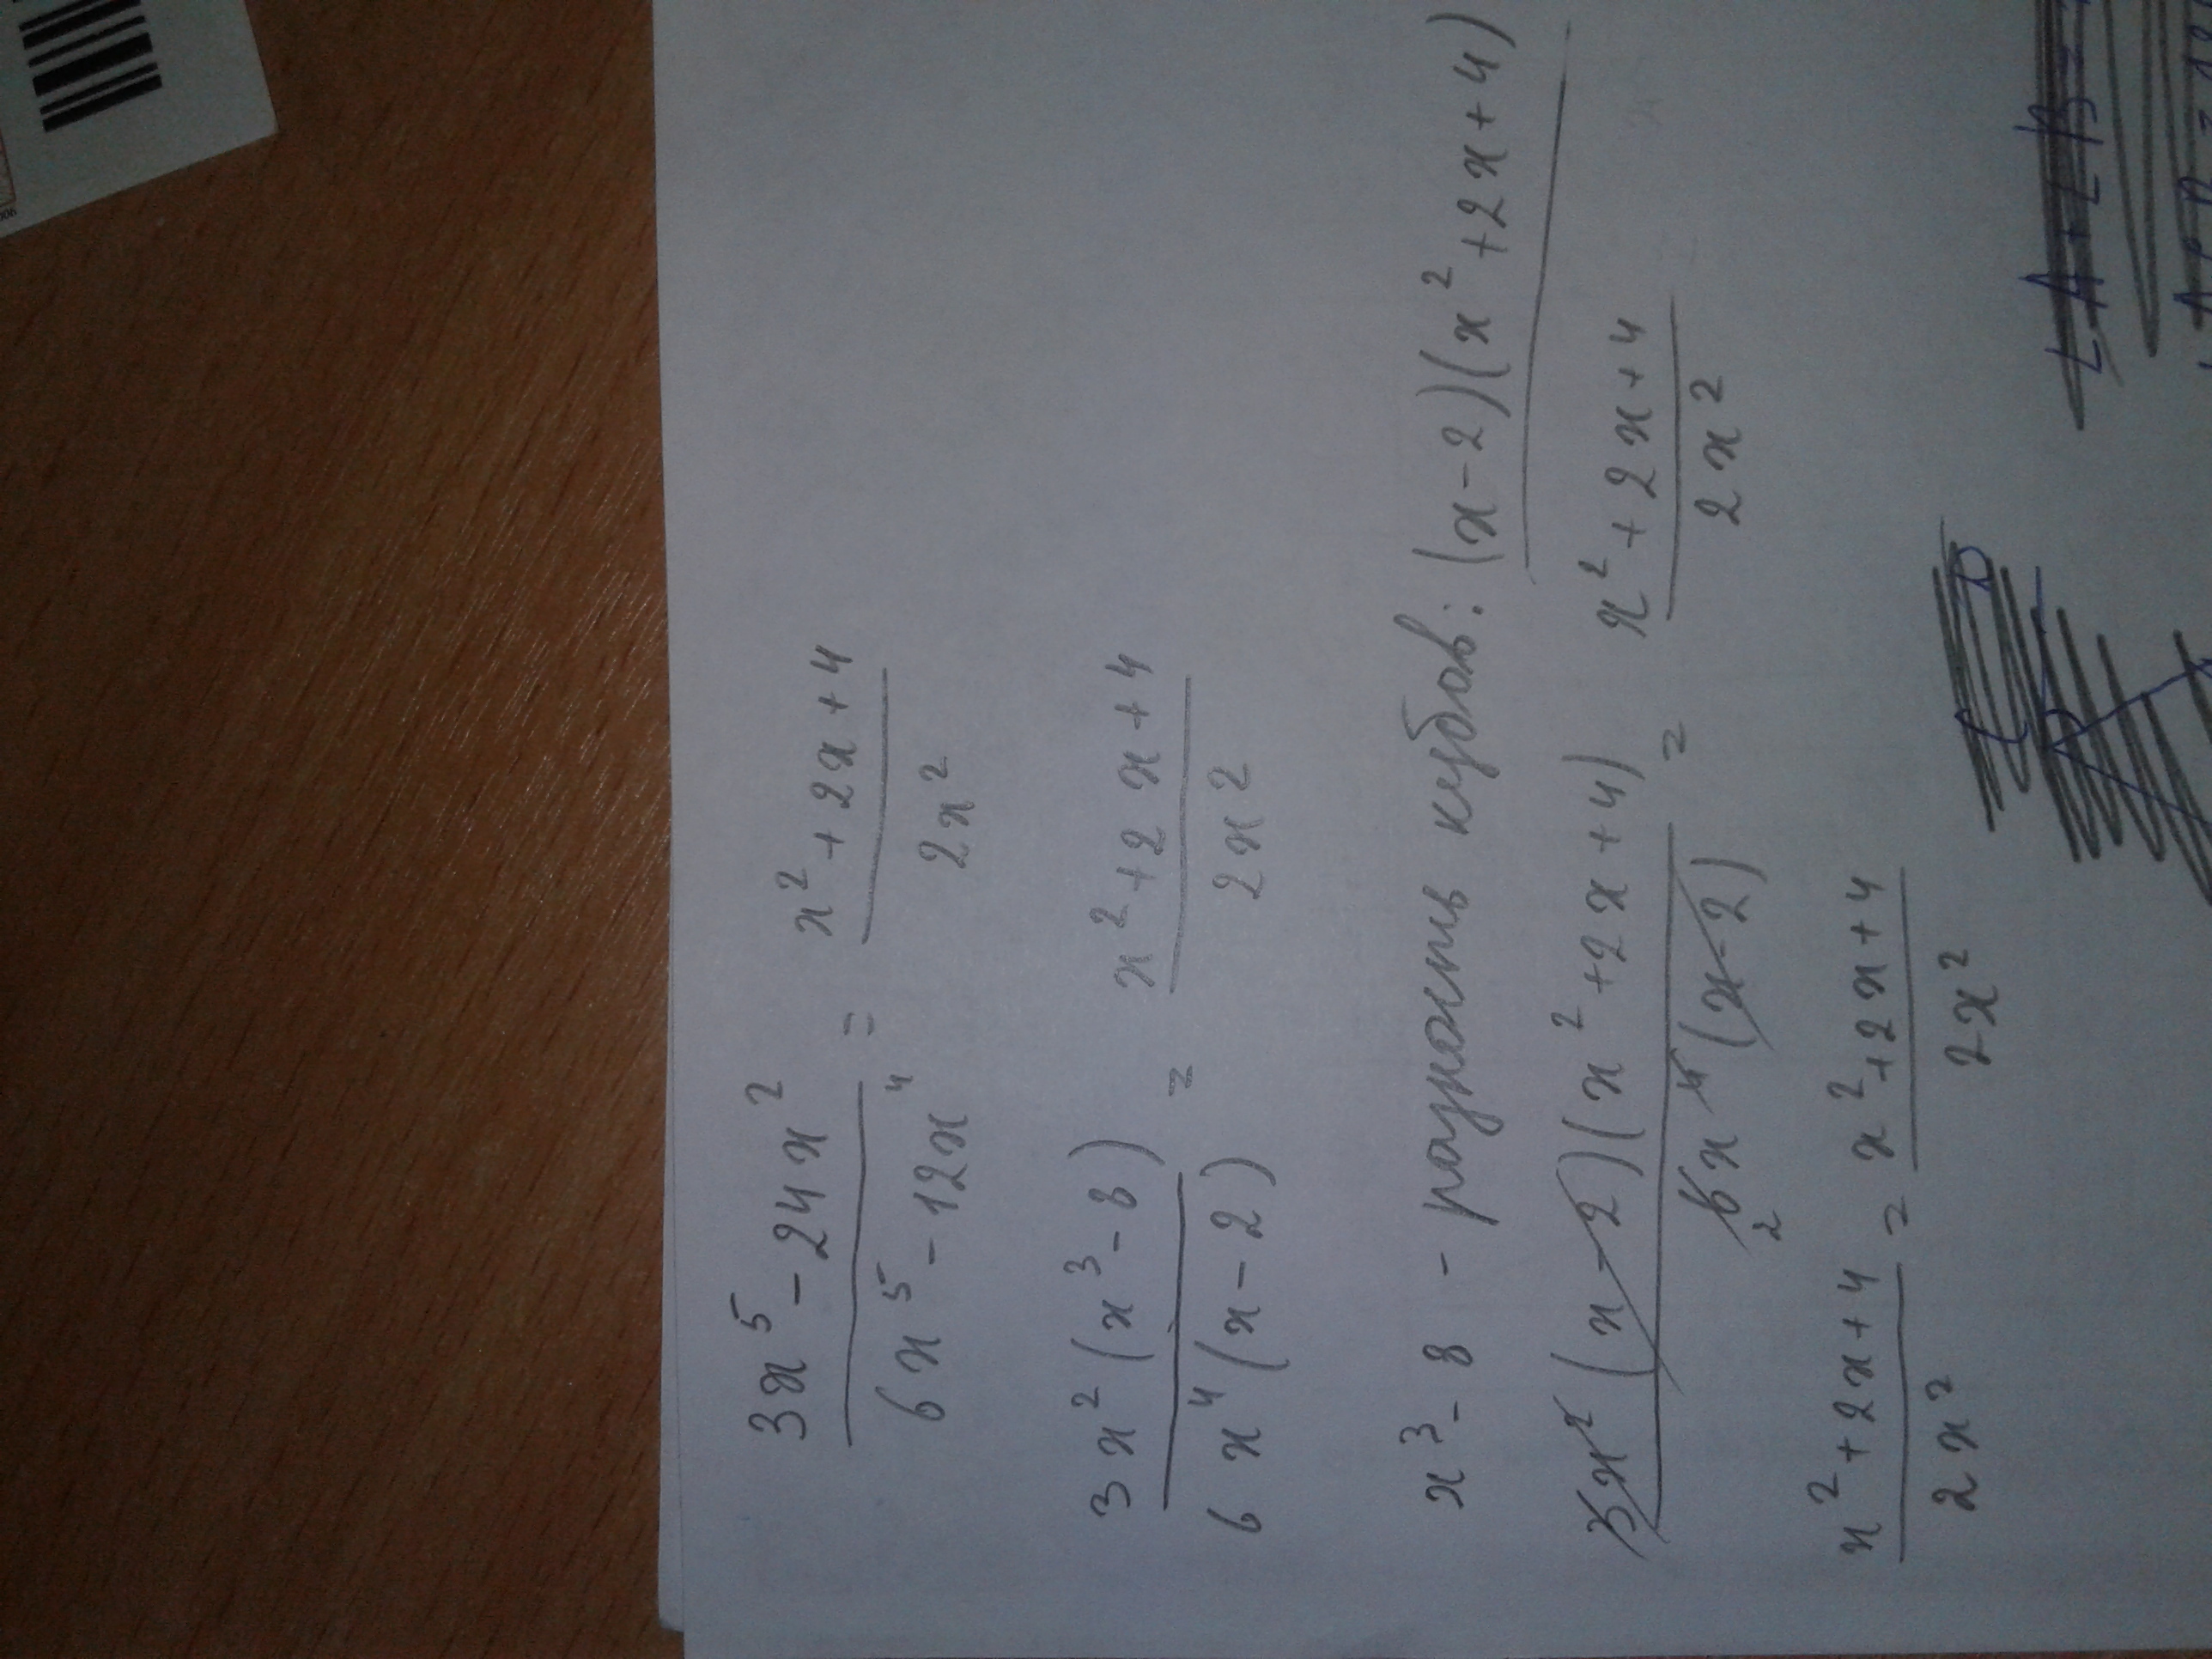 3x⁵ - 24x² / 6x⁵ - 12x⁴ = x² + 2x + 4 / 2x²
3x²(x³ - 8) / 6x⁴(x - 2) = x² + 2x + 4 / 2x²
x³ - 8 - разность кубов: (x - 2)(x² + 2x + 4)
3x²(x - 2)(x² + 2x + 4) / 6x⁴(x - 2) = x² + 2x + 4 / 2x²
2
x² + 2x + 4 / 2x² = x² + 2x + 4 / 2x²